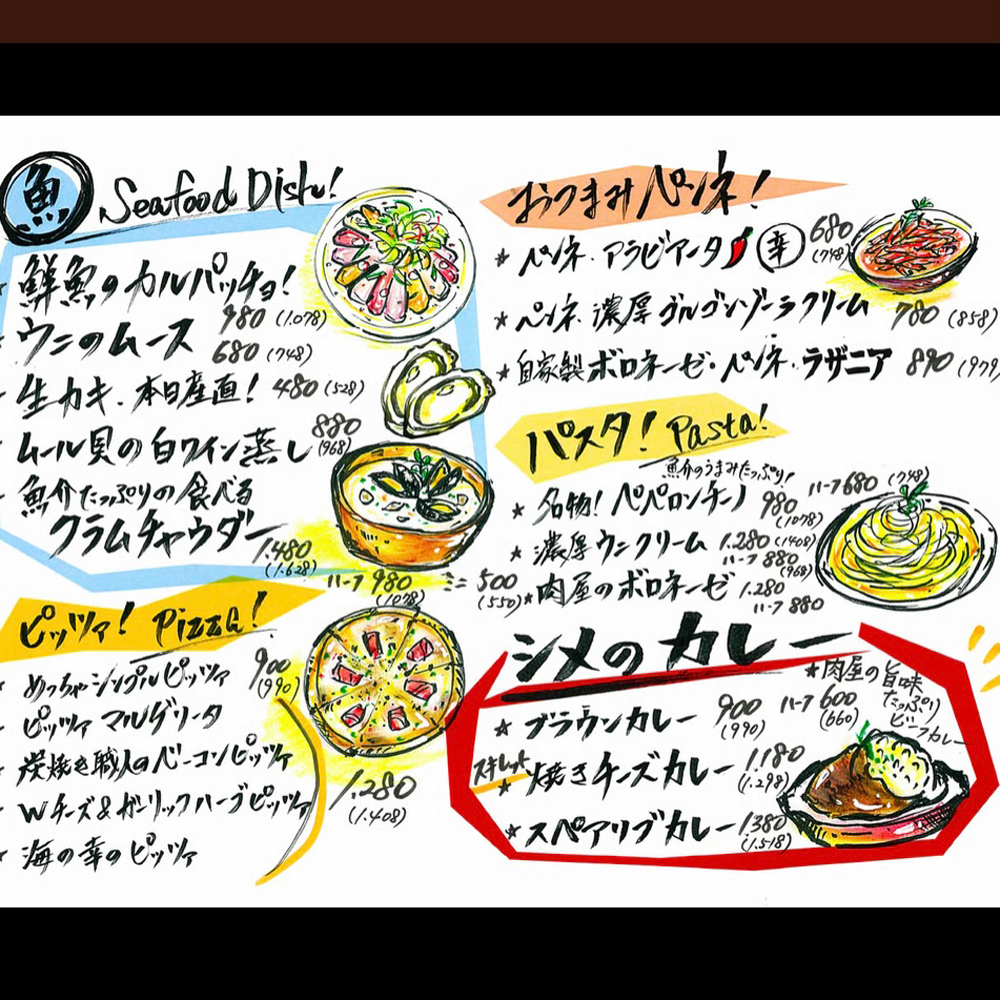 魚 Seafood Dish!
鮮魚のカルパッチョ!
980 (1.078)
ウニのムース 680 (748)
生カキ、本日産直! 480 (528)
ムール貝の白ワイン蒸し 880 (968)
魚介たっぷりの食べる
クラムチャウダー
1.480 (1.628)
ハーフ 980 (1078) ミニ 500 (550)
ピッツァ! Pizza!
めっちゃシンプルピッツァ 900 (990)
ピッツァ マルゲリータ
炭焼き職人のベーコンピッツァ
Wチーズ&ガーリックハーブピッツァ
海の幸のピッツァ
1.280 (1.408)
おつまみペンネ!
ペンネ・アラビアータ 辛 680 (748)
ペンネ・濃厚ゴルゴンゾーラクリーム 780 (858)
自家製ボロネーゼ・ペンネ・ラザニア 890 (979)
パスタ! Pasta!
魚介のうまみたっぷり!
名物!ペペロンチーノ 980 (1078) ハーフ680 (748)
濃厚ウニクリーム 1.280 (1408)
ハーフ880 (968)
肉屋のボロネーゼ 1.280
ハーフ880
シメのカレー
★肉屋の旨味
たっぷり
ビーフカレー
★ブラウンカレー 900 (990) ハーフ600 (660)
スキレット
★焼きチーズカレー 1.180 (1.298)
★スペアリブカレー 1.380 (1.518)